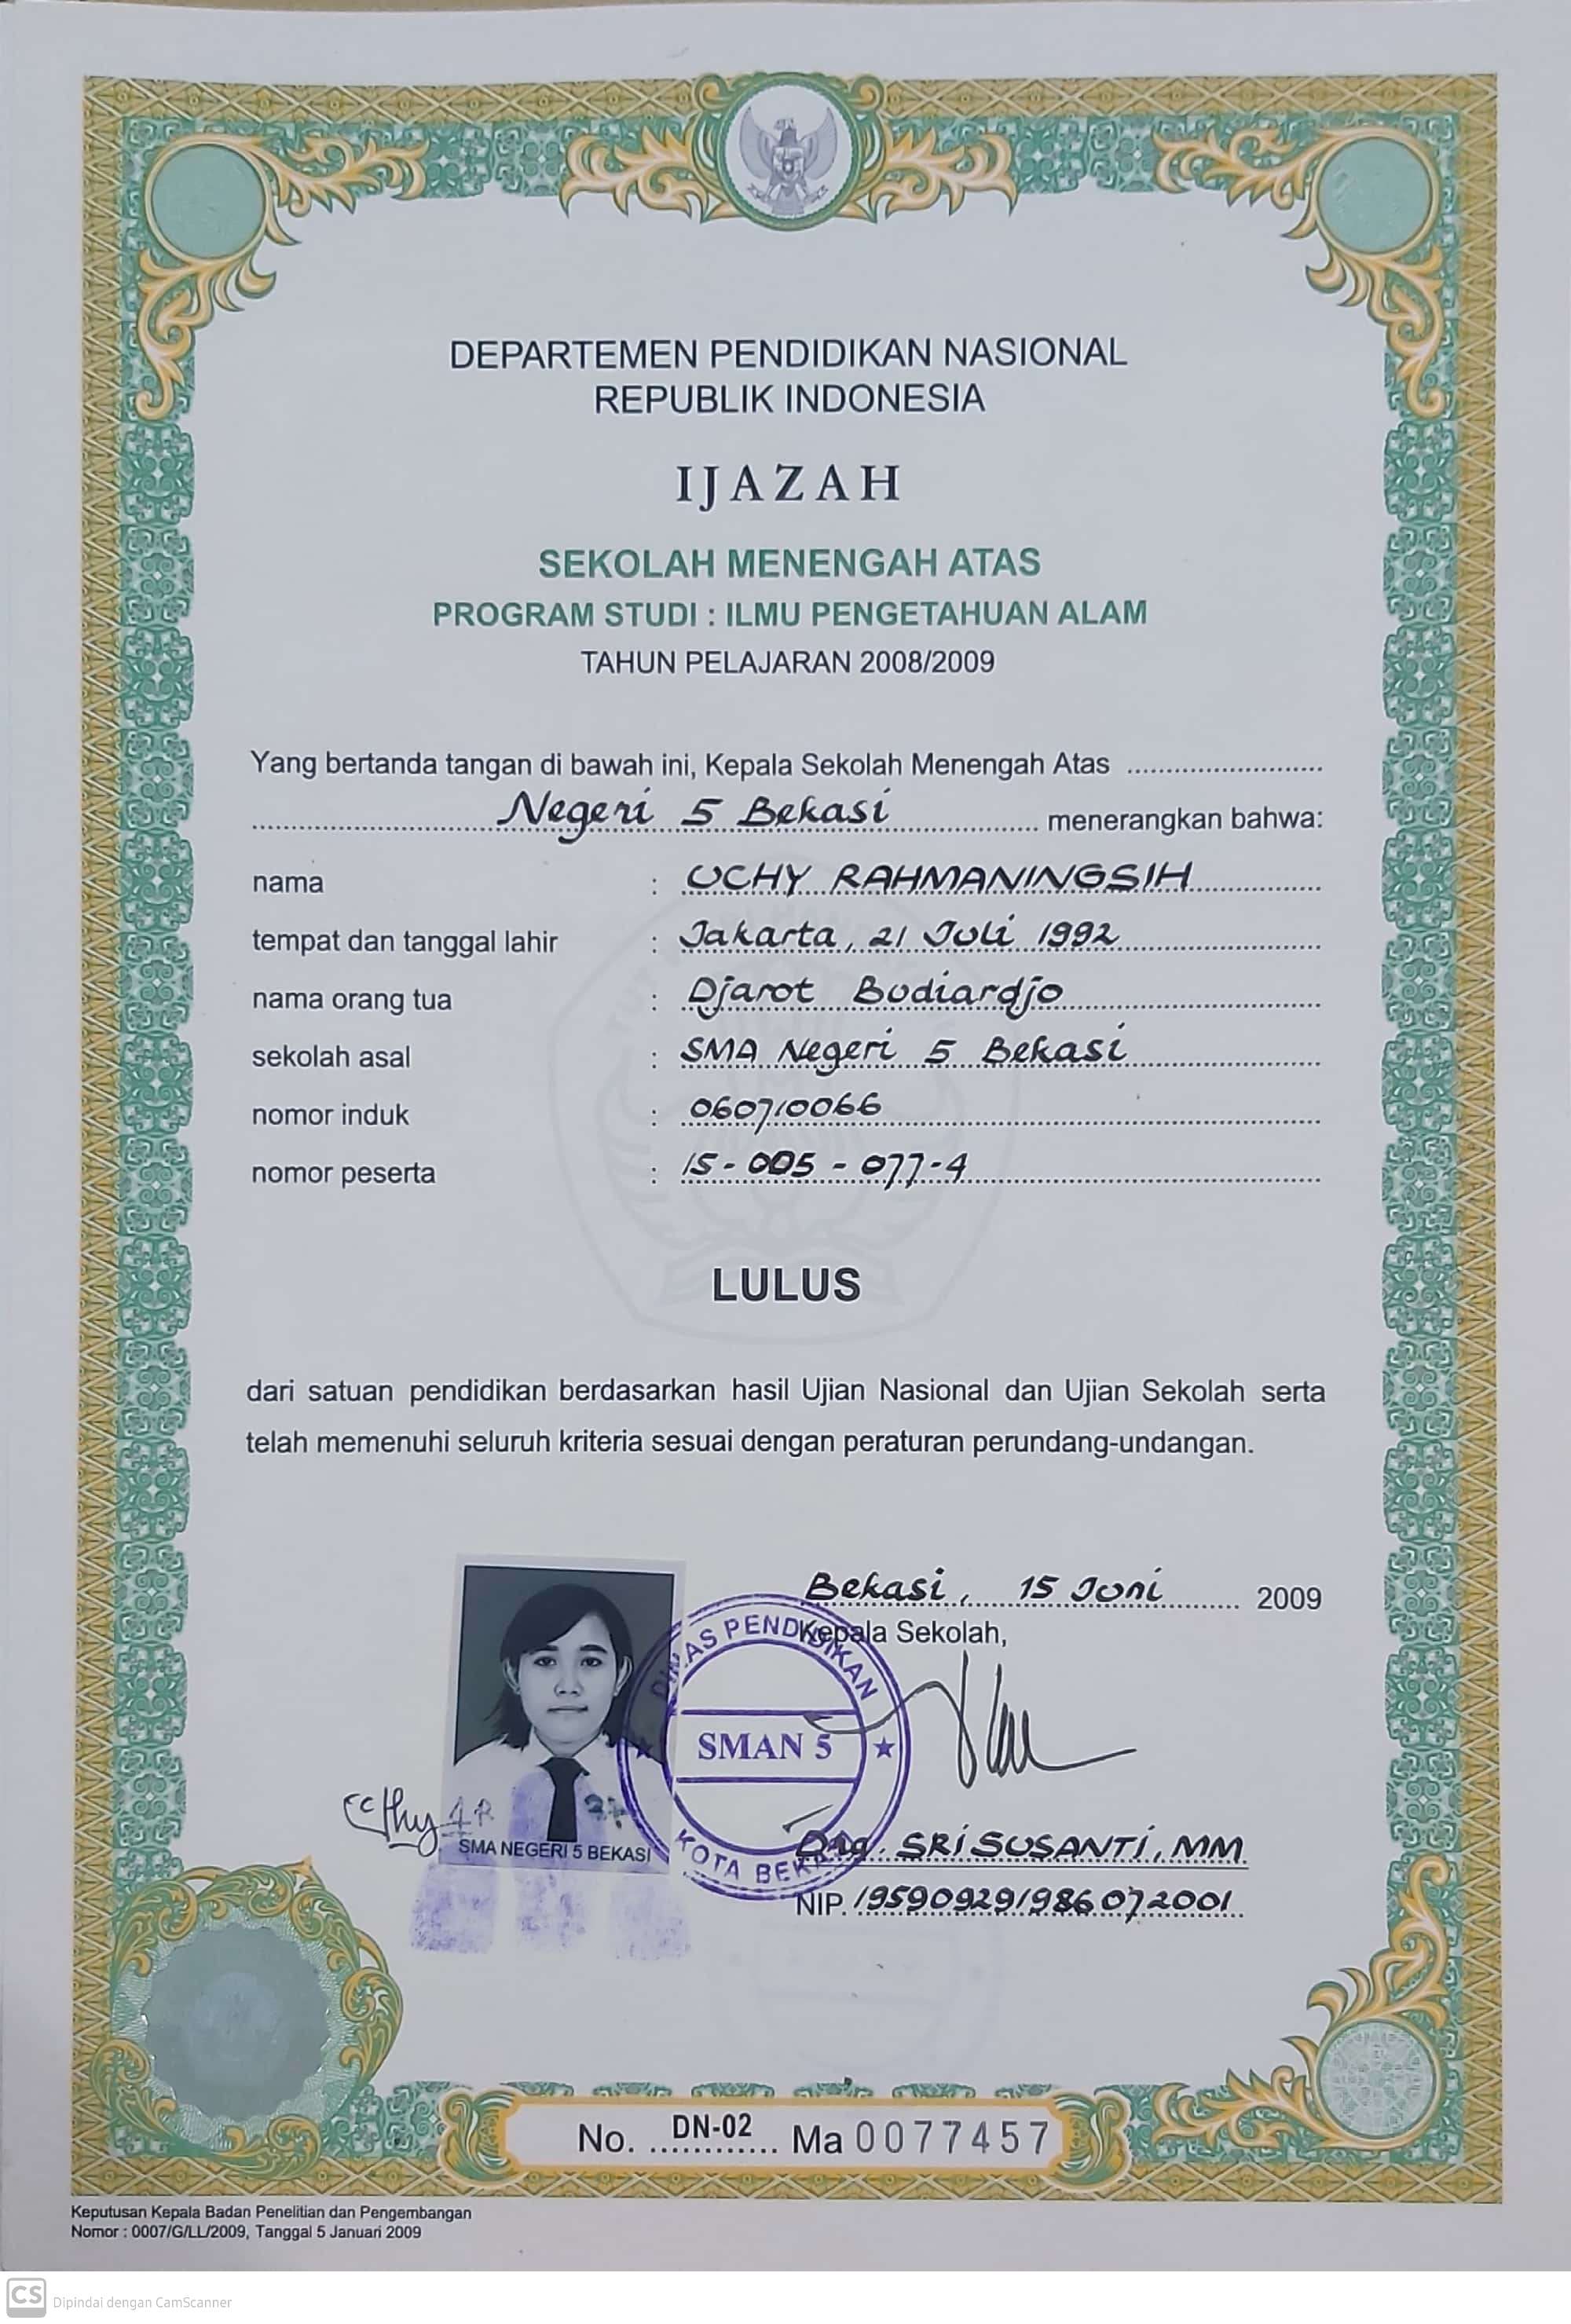 DEPARTEMEN PENDIDIKAN NASIONAL
REPUBLIK INDONESIA
IJAZAH
SEKOLAH MENENGAH ATAS
PROGRAM STUDI : ILMU PENGETAHUAN ALAM
TAHUN PELAJARAN 2008/2009
Yang bertanda tangan di bawah ini, Kepala Sekolah Menengah Atas
Negeri 5 Bekasi menerangkan bahwa:
nama : UCHY RAHMANINGSIH
tempat dan tanggal lahir : Jakarta, 21 Juli 1992
nama orang tua : Djarot Budiardjo
sekolah asal : SMA Negeri 5 Bekasi
nomor induk : 060710066
nomor peserta : 15-005-077-4
LULUS
dari satuan pendidikan berdasarkan hasil Ujian Nasional dan Ujian Sekolah serta
telah memenuhi seluruh kriteria sesuai dengan peraturan perundang-undangan.
Bekasi, 15 Juni 2009
Kepala Sekolah,
DINAS PENDIDIKAN
SMAN 5
KOTA BEKASI
SMA NEGERI 5 BEKASI
SRI SUSANTI, MM
NIP. 195909291986072001
No. DN-02 Ma 0077457
Keputusan Kepala Badan Penelitian dan Pengembangan
Nomor : 0007/G/LL/2009, Tanggal 5 Januari 2009
CS Dipindai dengan CamScanner